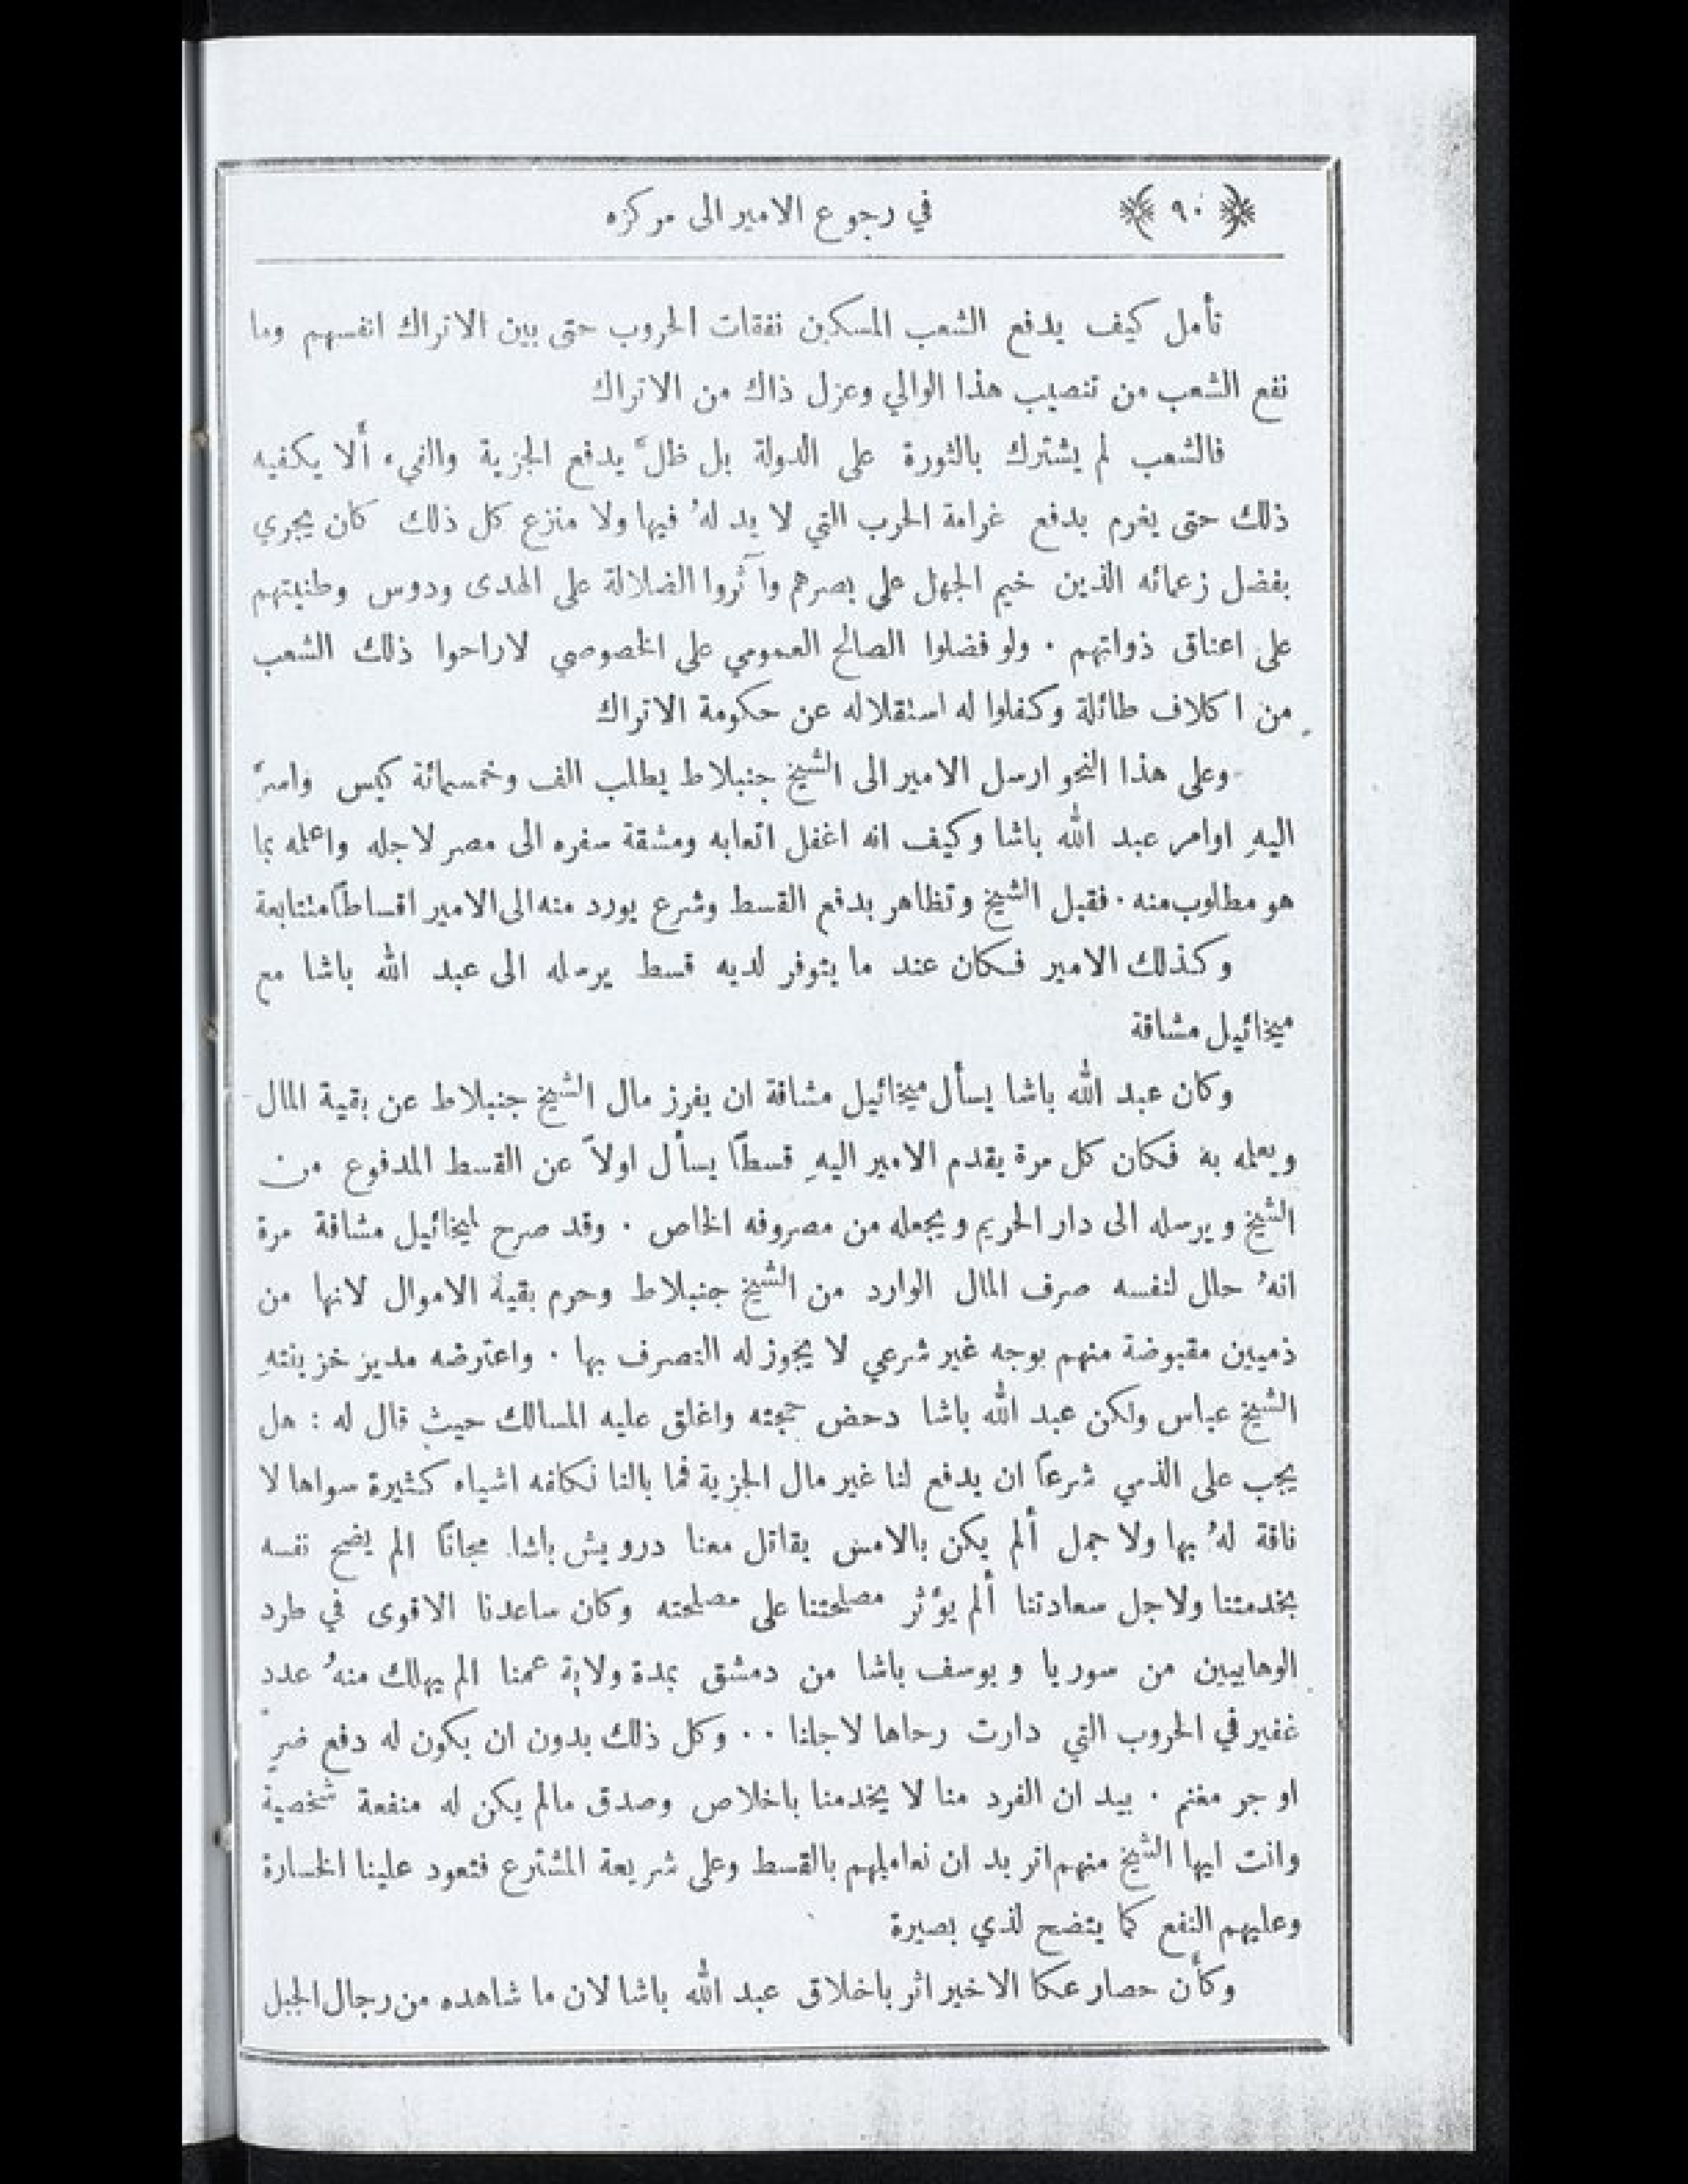 ﴿ ٩٠ ﴾ في رجوع الامير الى مركزه
تأمل كيف يدفع الشعب المسكين نفقات الحروب حتى بين الاتراك انفسهم وما
نفع الشعب من تنصيب هذا الوالي وعزل ذاك من الاتراك
فالشعب لم يشترك بالثورة على الدولة بل ظلّ يدفع الجزية والفيء ألا يكفيه
ذلك حتى يغرم بدفع غرامة الحرب التي لا يد لهُ فيها ولا منزع كل ذلك كان يجري
بفضل زعمائه الذين خيم الجهل على بصرهم وآثروا الضلالة على الهدى ودوس وطنيتهم
على اعناق ذواتهم . ولو فضلوا الصالح العمومي على الخصوصي لاراحوا ذلك الشعب
من اكلاف طائلة وكفلوا له استقلاله عن حكومة الاتراك
وعلى هذا النحو ارسل الامير الى الشيخ جنبلاط يطلب الف وخمسمائة كيس واسرَّ
اليهِ اوامر عبد الله باشا وكيف انه اغفل اتعابه ومشقة سفره الى مصر لاجله واعلمه بما
هو مطلوب منه . فقبل الشيخ وتظاهر بدفع القسط وشرع يورد منه الى الامير اقساطًا متتابعة
وكذلك الامير فكان عند ما يتوفر لديه قسط يرسله الى عبد الله باشا مع
ميخائيل مشاقة
وكان عبد الله باشا يسأل ميخائيل مشاقة ان يفرز مال الشيخ جنبلاط عن بقية المال
ويعلمه به فكان كل مرة يقدم الامير اليهِ قسطًا يسأل اولاً عن القسط المدفوع من
الشيخ ويرسله الى دار الحريم ويجعله من مصروفه الخاص . وقد صرح لميخائيل مشاقة مرة
انهُ حلل لنفسه صرف المال الوارد من الشيخ جنبلاط وحرم بقية الاموال لانها من
ذميين مقبوضة منهم بوجه غير شرعي لا يجوز له التصرف بها . واعترضه مدير خزينتهِ
الشيخ عباس ولكن عبد الله باشا دحض حجته واغلق عليه المسالك حيث قال له : هل
يجب على الذمي شرعًا ان يدفع لنا غير مال الجزية فما بالنا نكلفه اشياء كثيرة سواها لا
ناقة لهُ بها ولا جمل ألم يكن بالامس يقاتل معنا درويش باشا مجانًا الم يضح نفسه
بخدمتنا ولاجل سعادتنا ألم يؤثر مصلحتنا على مصلحته وكان ساعدنا الاقوى في طرد
الوهابيين من سوريا ويوسف باشا من دمشق بمدة ولاية عمنا الم يهلك منهُ عدد
غفير في الحروب التي دارت رحاها لاجلنا .. وكل ذلك بدون ان يكون له دفع ضرٍّ
او جر مغنم . بيد ان الفرد منا لا يخدمنا باخلاص وصدق مالم يكن له منفعة شخصية
وانت ايها الشيخ منهم اتريد ان نعاملهم بالقسط وعلى شريعة المشترع فتعود علينا الخسارة
وعليهم النفع كما يتضح لذي بصيرة
وكأن حصار عكا الاخير اثر باخلاق عبد الله باشا لان ما شاهده من رجال الجبل